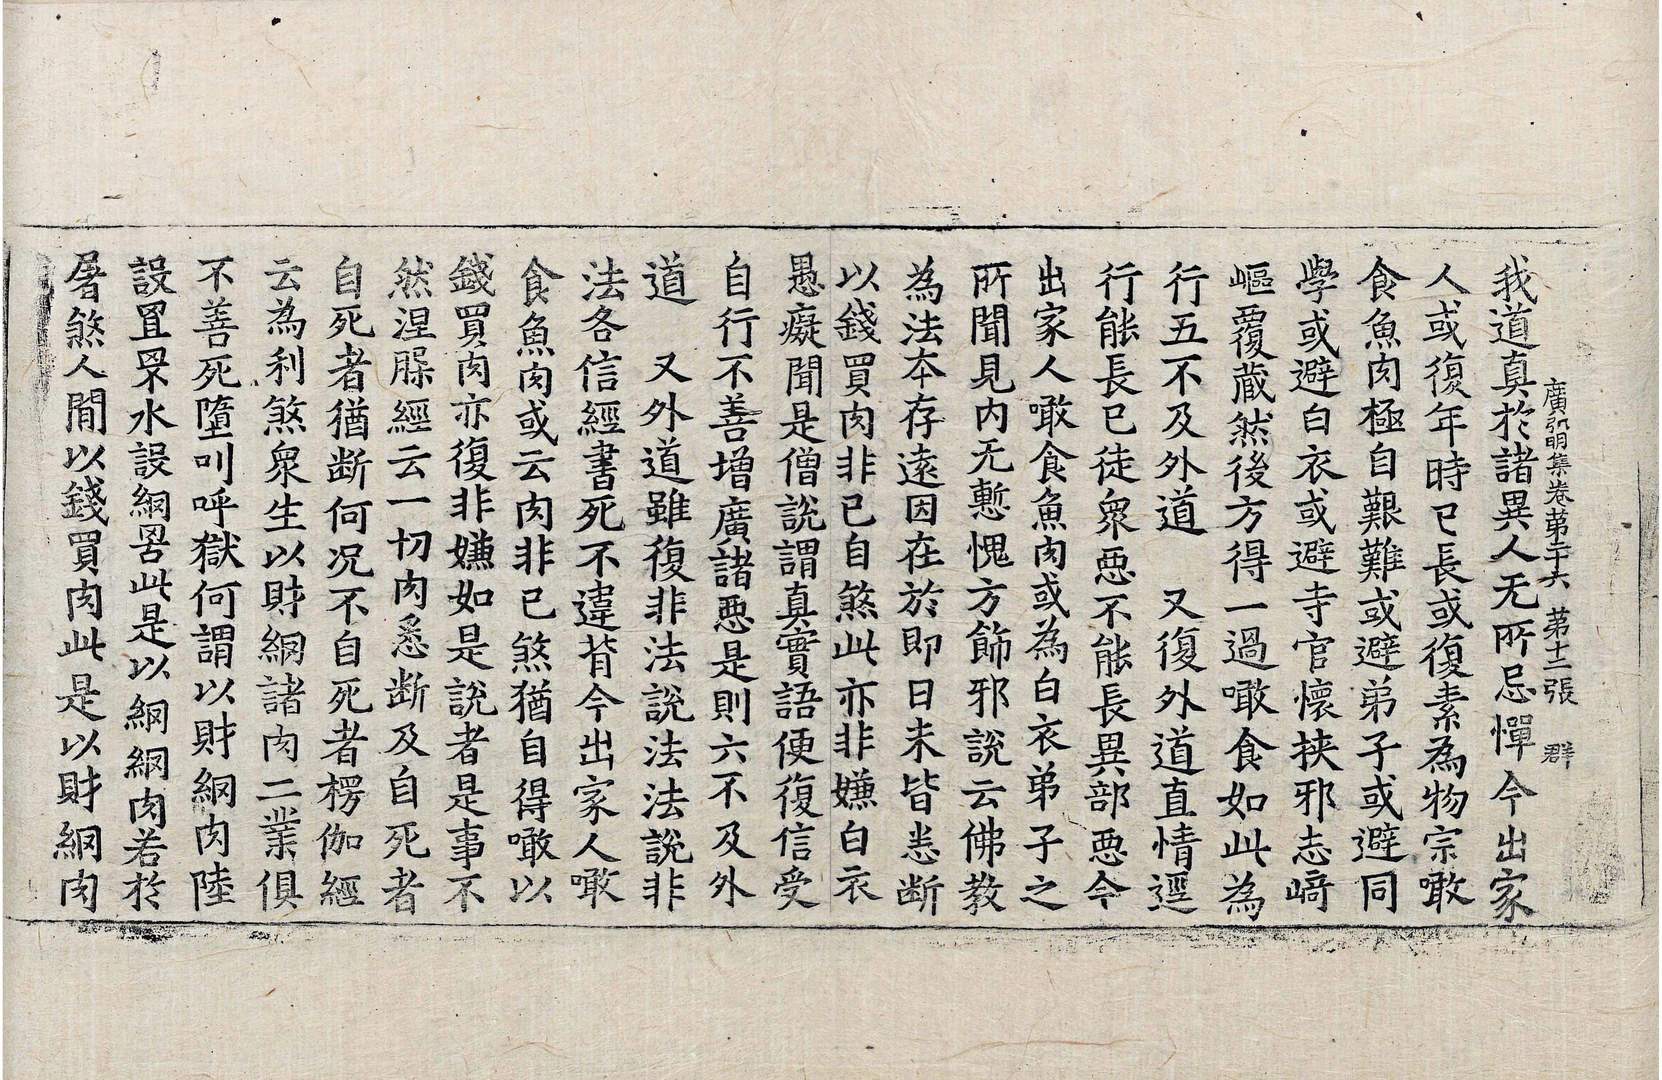 廣弘明集卷苐二十六　苐十二張　群
我道真於諸異人无所忌憚今出家
人或復年時已長或復素為物宗噉
食魚肉極自艱難或避弟子或避同
學或避白衣或避寺官懷挾邪志﨑
嶇覆蔵然後方得一過噉食如此為
行五不及外道　又復外道直情逕
行能長己徒衆惡不能長異部惡今
出家人噉食魚肉或為白衣弟子之
所聞見内无慙愧方飾邪說云佛教
為法夲存遠因在於即日未皆悉断
以錢買肉非己自煞此亦非嫌白衣
愚癡聞是僧說謂真實語便復信受
自行不善增廣諸惡是則六不及外
道　又外道雖復非法說法法說非
法各信經書死不違背今出家人噉
食魚肉或云肉非己煞猶自得噉以
錢買肉亦復非嫌如是說者是事不
然涅槃經云一切肉悉断及自死者
自死者猶断何况不自死者楞伽經
云為利煞衆生以財網諸肉二業俱
不善死墮叫呼獄何謂以財網肉陸
設罝罘水設網罟此是以網網肉若於
屠煞人間以錢買肉此是以財網肉